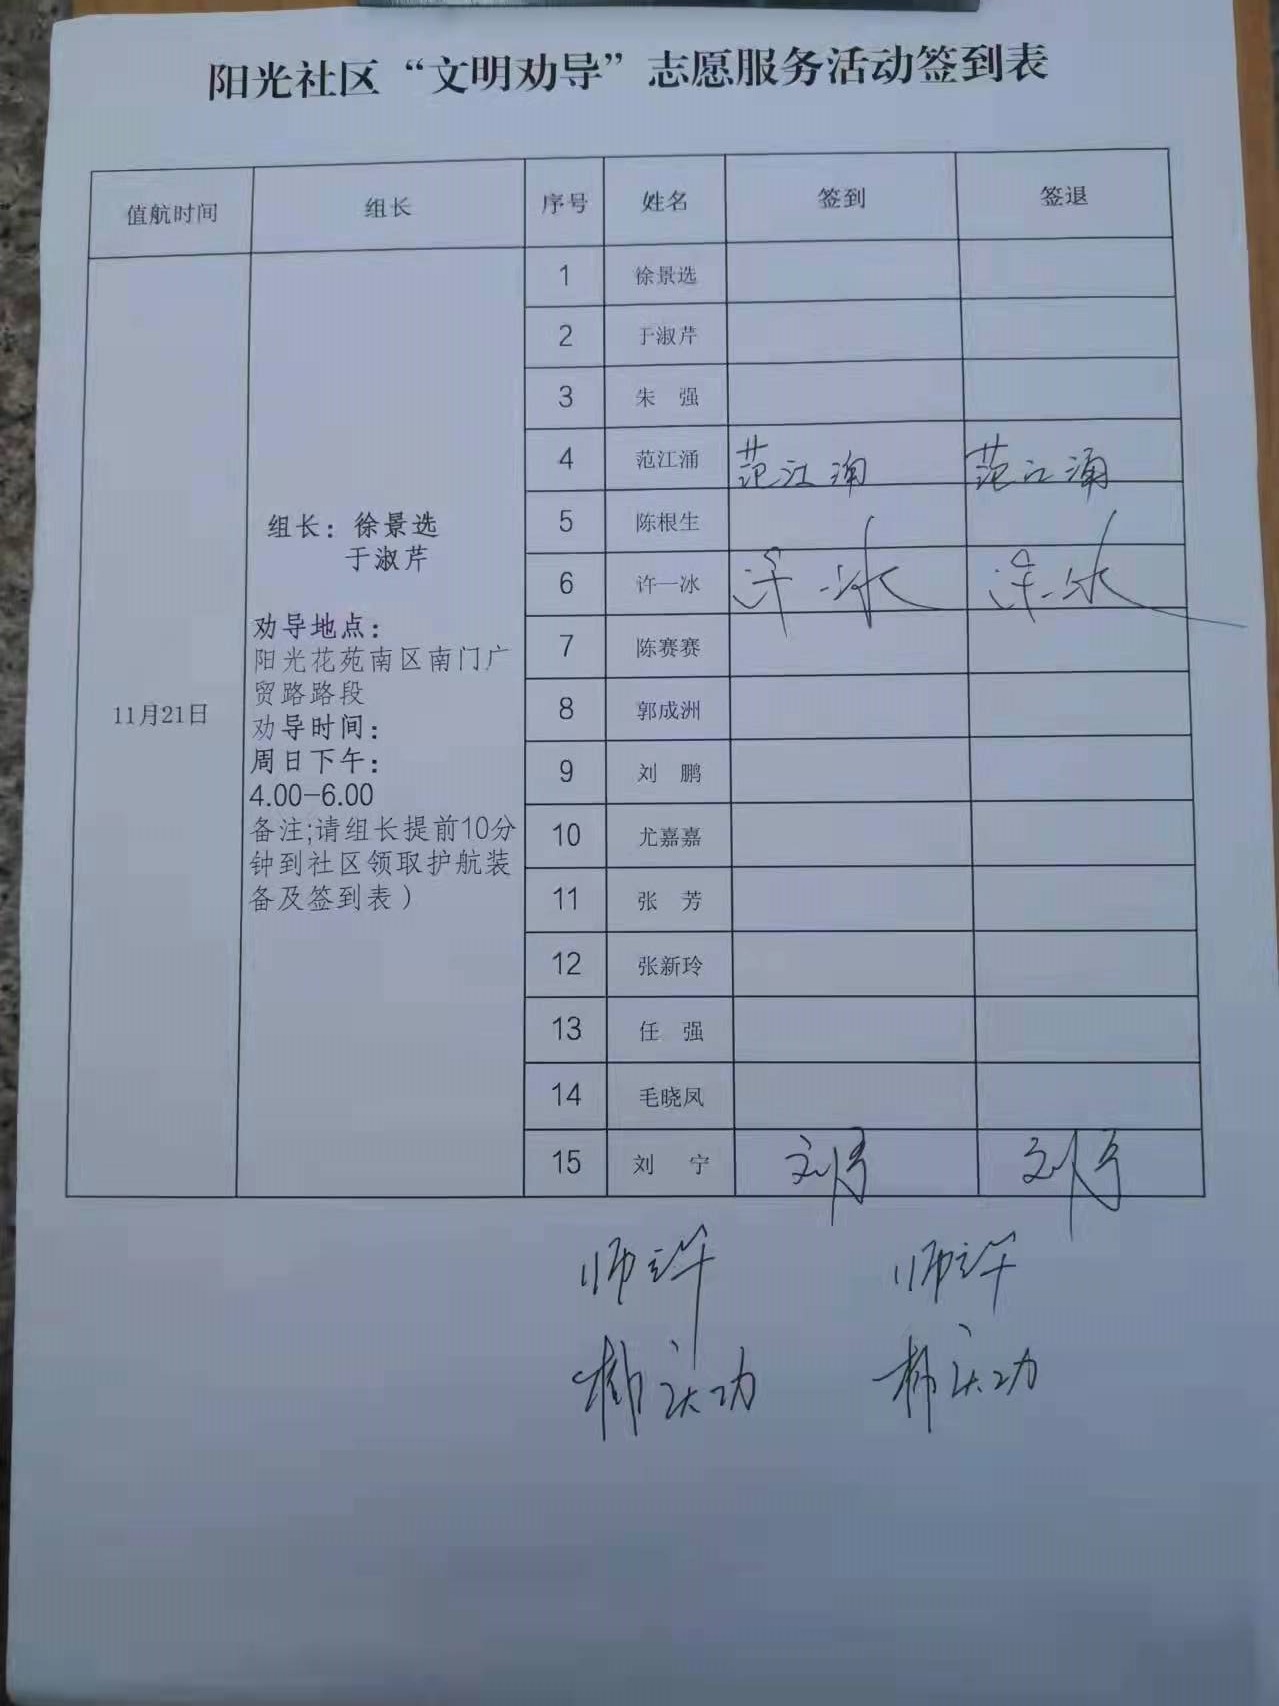 阳光社区“文明劝导”志愿服务活动签到表
值航时间 组长 序号 姓名 签到 签退
11月21日
组长：徐景选
于淑芹
劝导地点：
阳光花苑南区南门广
贸路路段
劝导时间：
周日下午：
4.00-6.00
备注;请组长提前10分
钟到社区领取护航装
备及签到表）
1 徐景选
2 于淑芹
3 朱 强
4 范江涌 范江涌 范江涌
5 陈根生
6 许一冰 许一冰 许一冰
7 陈赛赛
8 郭成洲
9 刘 鹏
10 尤嘉嘉
11 张 芳
12 张新玲
13 任 强
14 毛晓凤
15 刘 宁 刘宁 刘宁